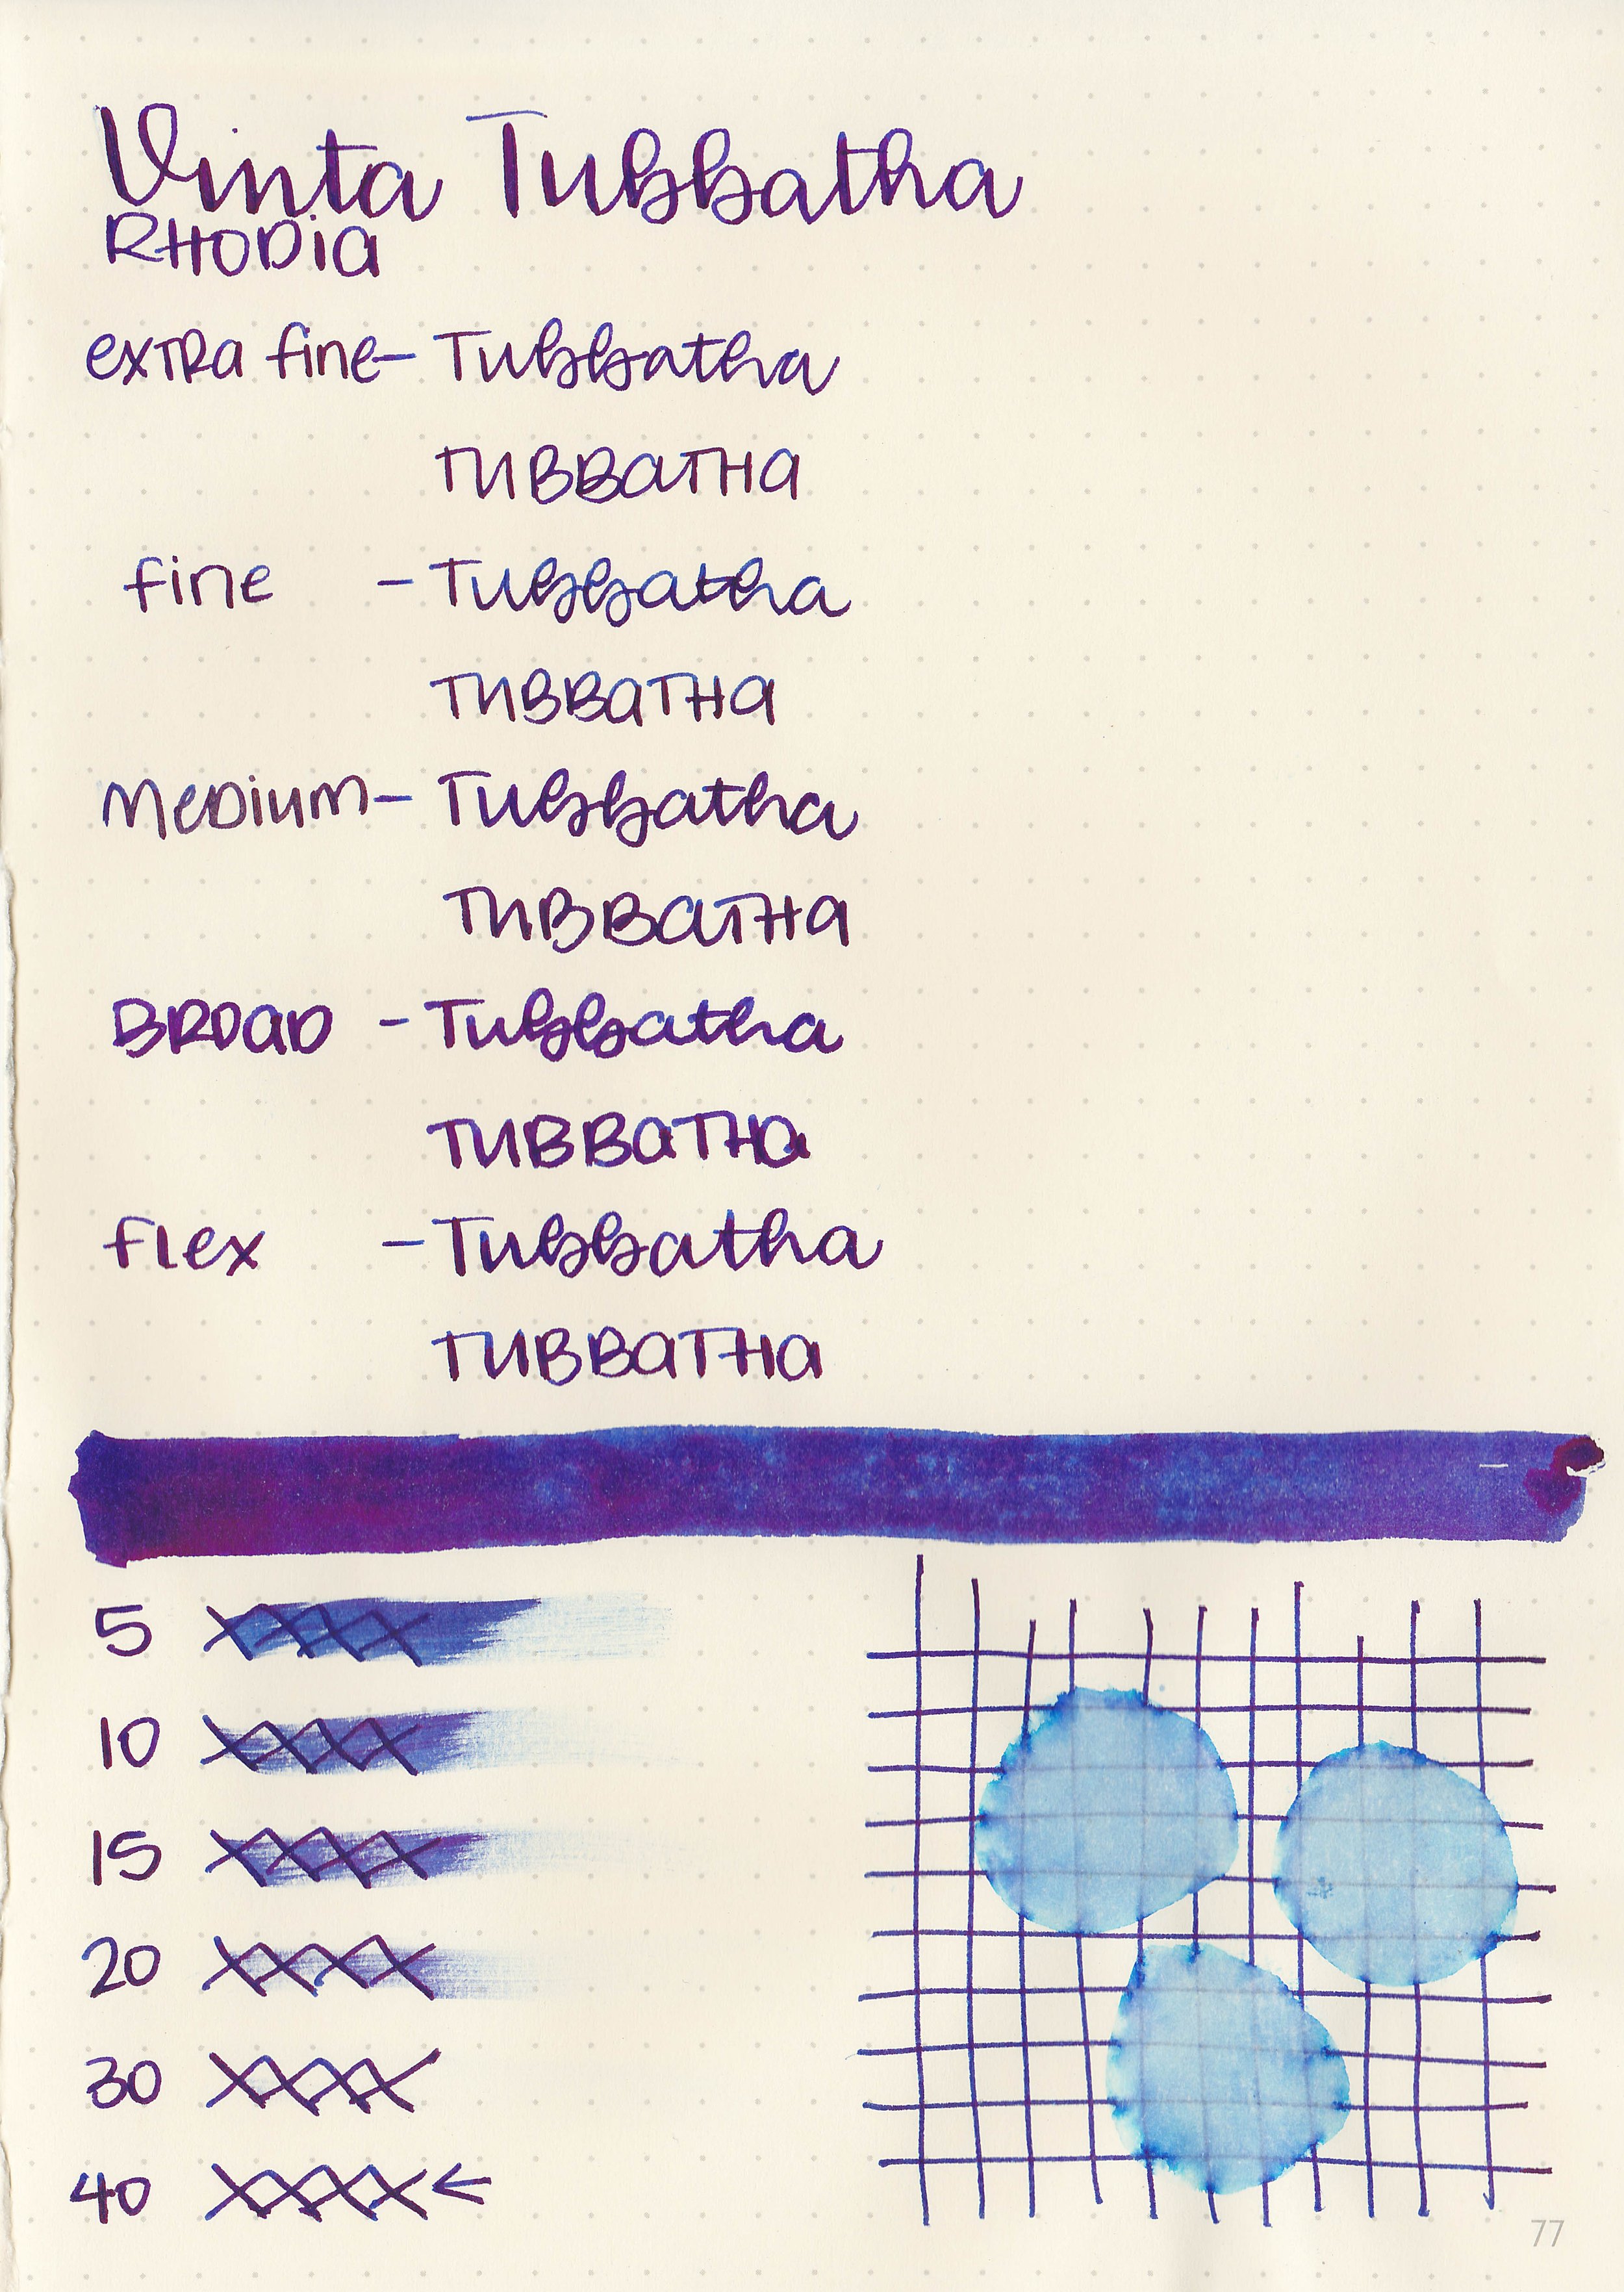 Vinta Tubbatha
RHODIA
extra fine - Tubbatha
TUBBATHA
fine - Tubbatha
TUBBATHA
Medium - Tubbatha
TUBBATHA
BROAD - Tubbatha
TUBBATHA
flex - Tubbatha
TUBBATHA
5 XXXX
10 XXXX
15 XXXX
20 XXXX
30 XXXX
40 XXXX ←
77